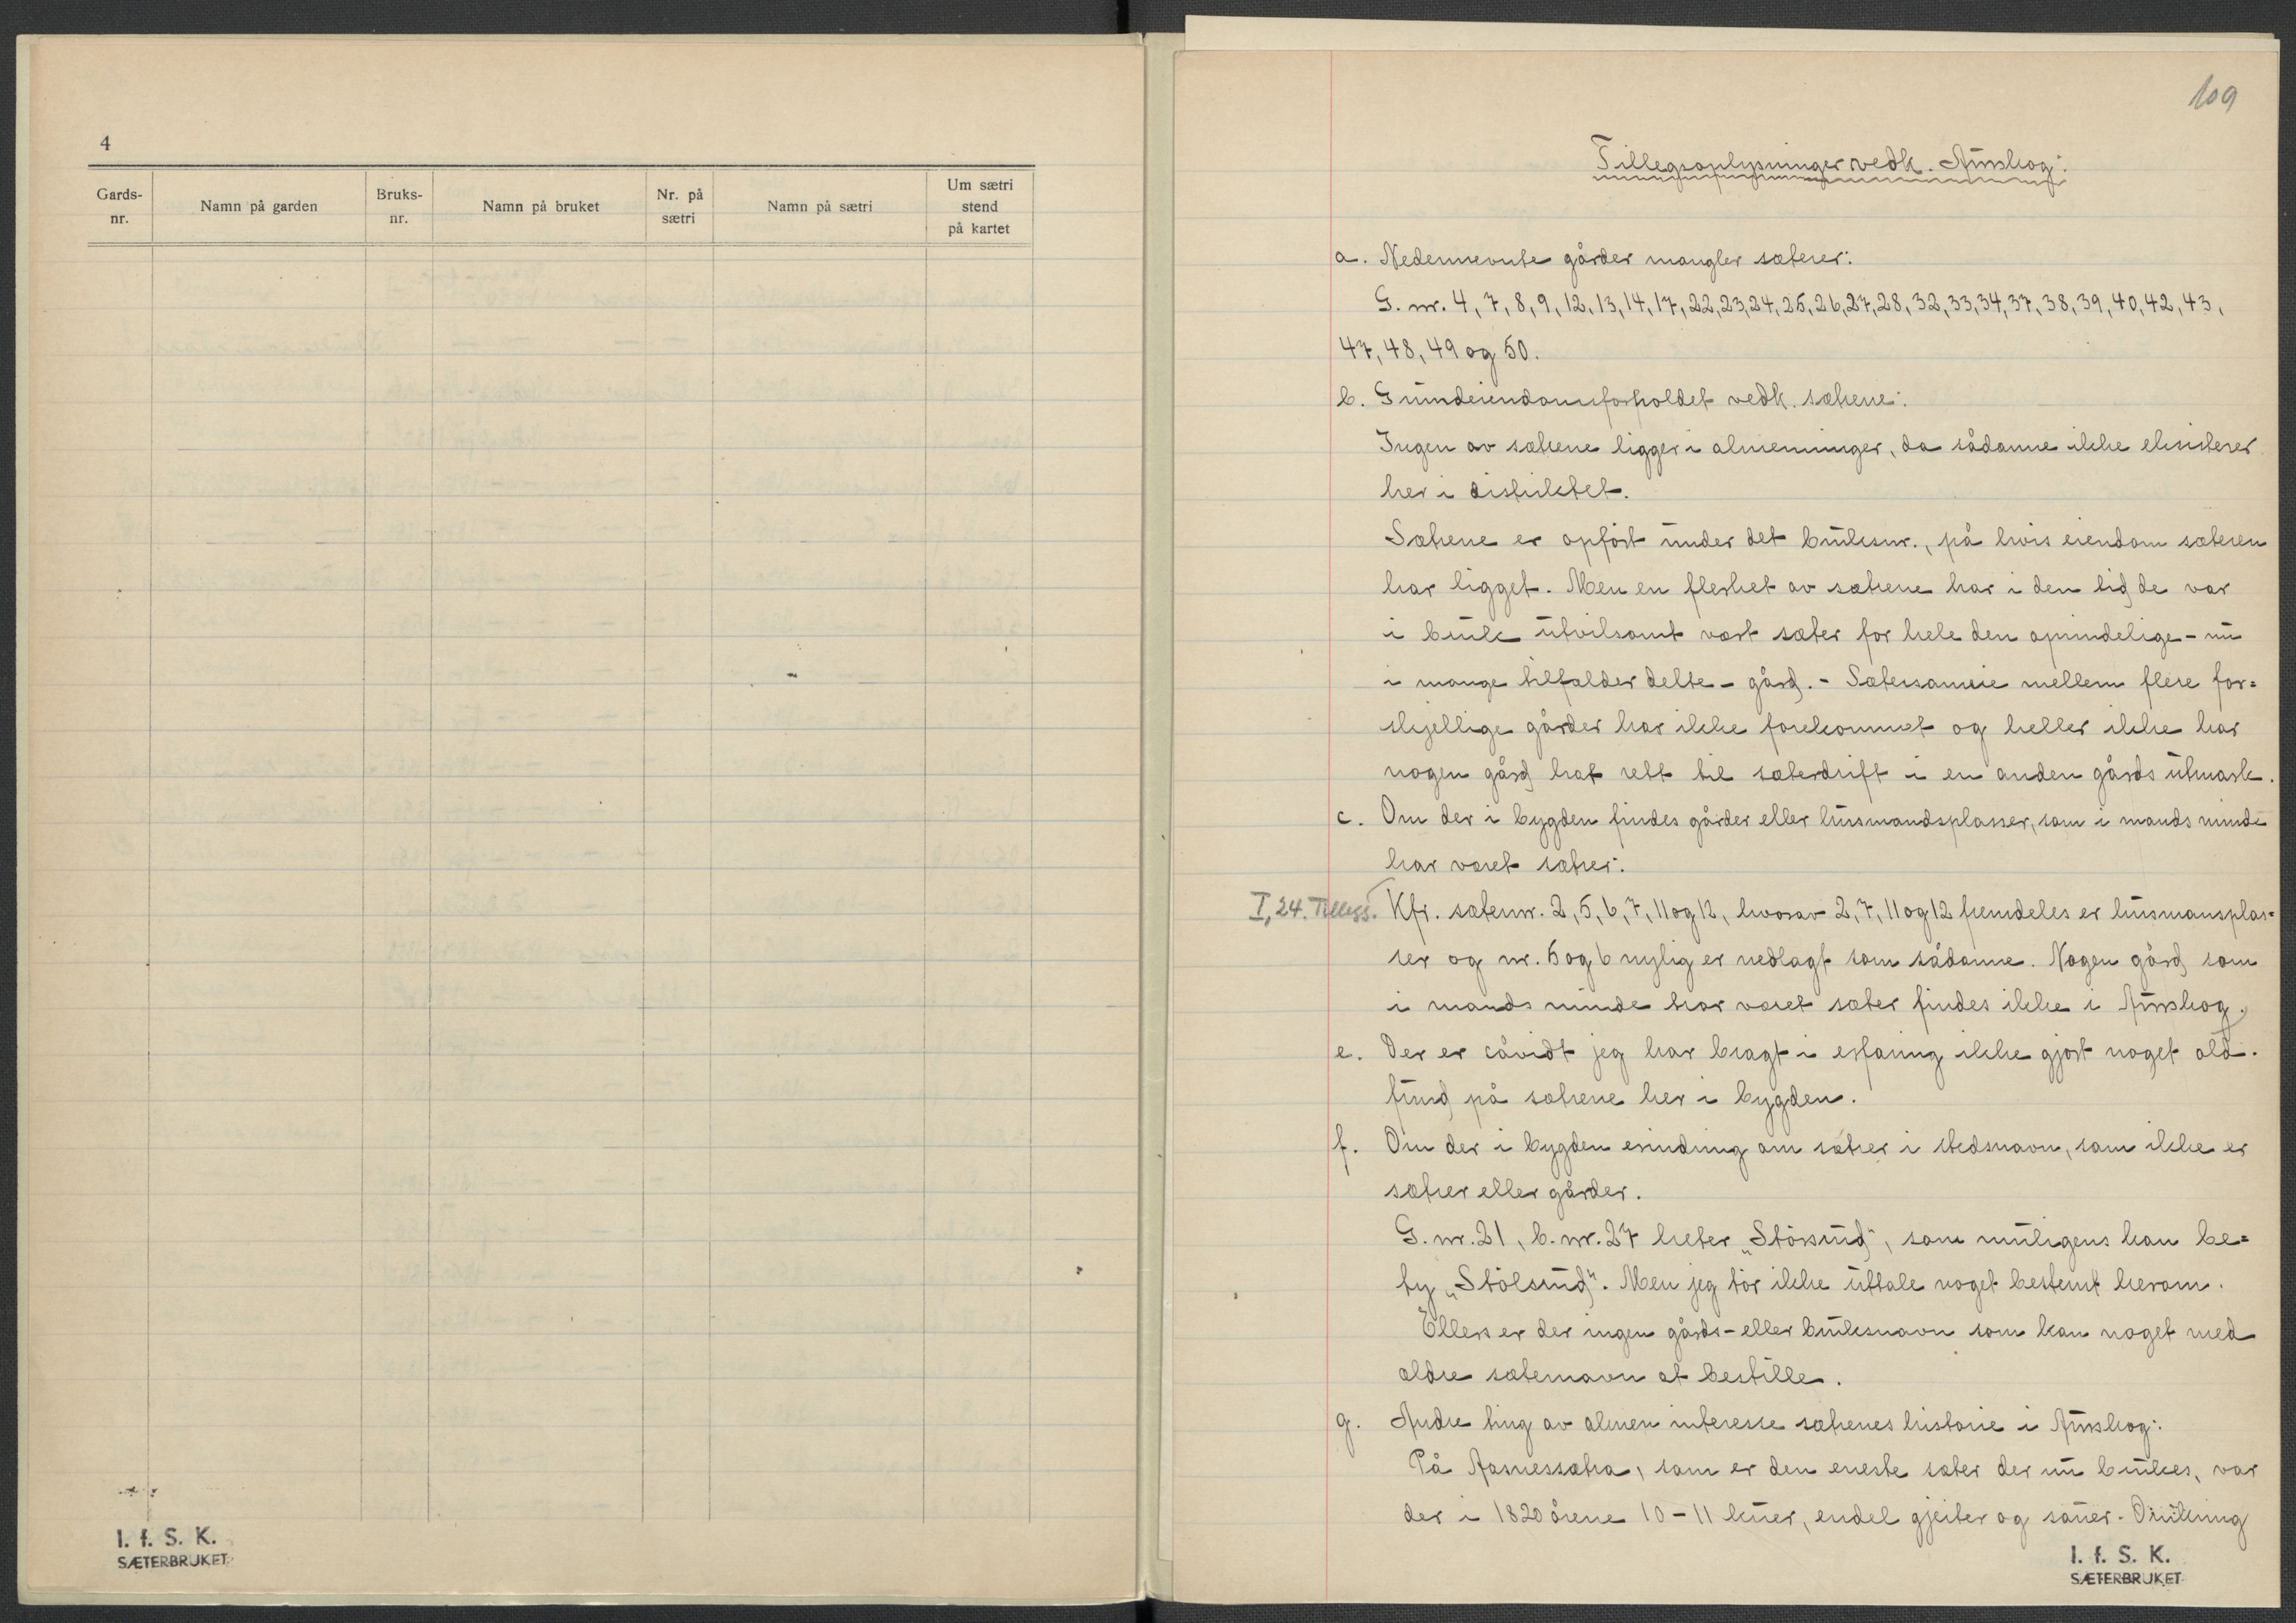 4
Gards-
nr.
Namn på garden
Bruks-
nr.
Namn på bruket
Nr. på
sætri
Namn på sætri
Um sætri
stend
på kartet
I. f. S. K.
SÆTERBRUKET
109
Tillegsoplysninger vedk. Aurskog:
a. Nedennevnte gårder mangler sæterer:
G. nr. 4, 7, 8, 9, 12, 13, 14, 17, 22, 23, 24, 25, 26, 27, 28, 32, 33, 34, 37, 38, 39, 40, 42, 43,
47, 48, 49 og 50.
b. Grundeiendomsforholdet vedk. sætrene:
Ingen av sætrene ligger i almenninger, da sådanne ikke eksisterer
her i distriktet.
Sætrene er opført under det bruksnr., på hvis eiendom sæteren
har ligget. Men en flerhet av sætrene har i den tid de var
i bruk utvilsomt vært sæter for hele den oprindelige - nu
i mange tilfælder delte - gård. - Sætersameie mellem flere for=
skjellige gårder har ikke forekommet og heller ikke har
nogen gård hat rett til sæterdrift i en anden gårds utmark.
c. Om der i bygden findes gårder eller husmandsplasser, som i mands minde
har været sætrer:
I, 24. Tillegg. Kfr. sæternr. 2, 5, 6, 7, 11 og 12, hvorav 2, 7, 11 og 12 fremdeles er husmansplas=
ser og nr. 5 og 6 nylig er nedlagt som sådanne. Nogen gård som
i mands minde har været sæter findes ikke i Aurskog.
e. Der er såvidt jeg har bragt i erfaring ikke gjort noget old-
fund på sætrene her i bygden.
f. Om der i bygden erindring om sætrer i stedsnavn, som ikke er
sætrer eller gårder.
G. nr. 21, b. nr. 27 heter „Störsrud", som muligens kan be=
ty „Stölsrud". Men jeg tör ikke uttale noget bestemt herom.
Ellers er der ingen gårds- eller bruksnavn som kan noget med
ældre sæternavn at bestille.
g. Andre ting av almen interesse sætrenes historie i Aurskog:
På Aasnessætra, som er den eneste sæter der nu brukes, var
der i 1820 årene 10 - 11 kuer, endel gjeiter og sauer.
I. f. S. K.
SÆTERBRUKET